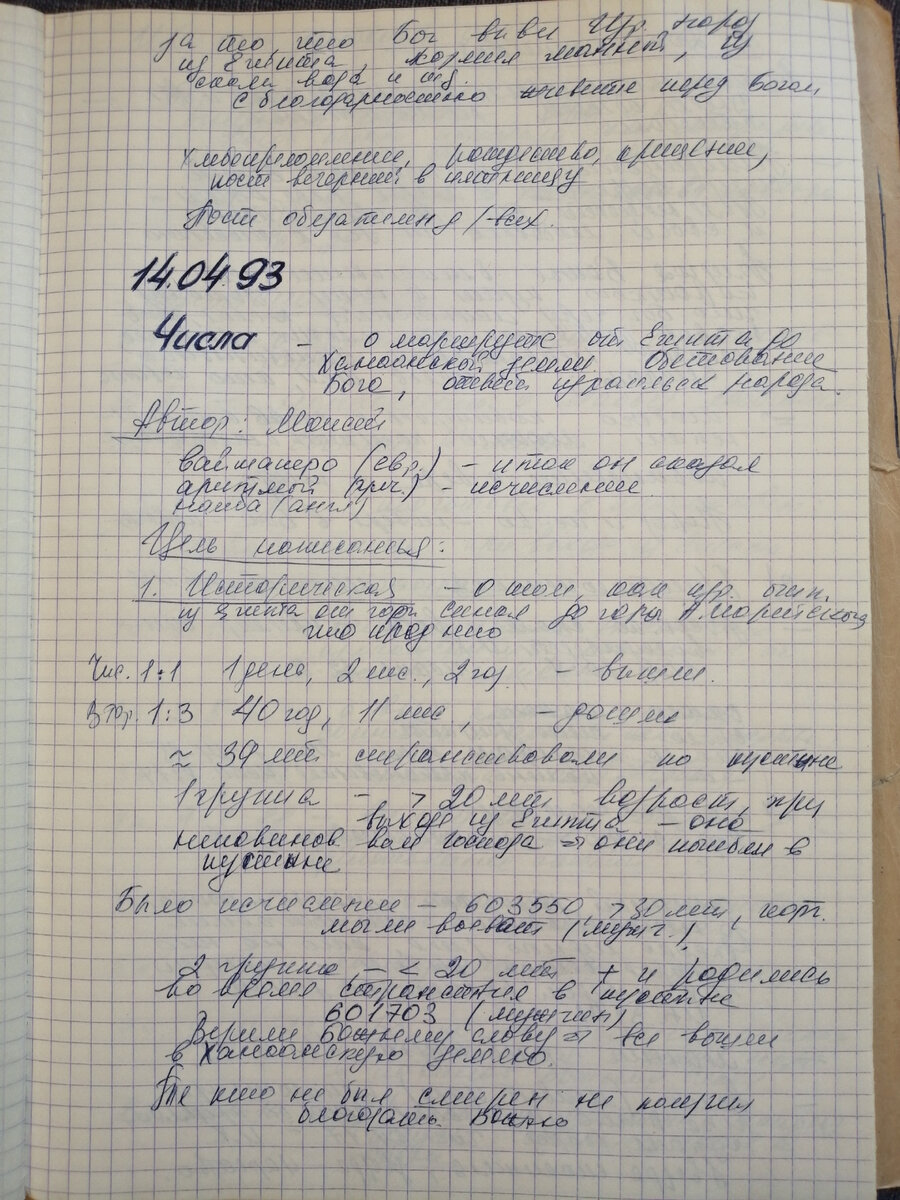 за то, что Бог выви Изр. народ
из Египта, кормил манной, из
скалы вода и тд.
С благодарностью жевите перед Богом
Хлебопреломление, рождество, крищение,
пост вечерний в пятницу
Пост обязателен д/всех.
14.04.93
Числа – о маршруте от Египта до
Ханаанской земли. Обетование
Бога, израильск народа.
Автор: Моисей
вайманеро (евр.) – итак он сказал
аритмой (греч.) – исчисление
намба (англ)
Цель написанья:
1. Историческая – о том, как изр.
из Египта от горы Синая до горы
Чис. 1:1 1 день, 2 мес., 2 год – вышли.
Втор. 1:3 40 год, 11 мес, – дошли
≈ 39 лет странствовали по пустыне
1 группа – > 20 лет возрост, при
выходе из Египта – она
неповинов вали Господа ⇒ они погибли в
пустыне
Было исчисление – 603550, >30 лет, кот.
могли воевать (мужч.)
2 группа – < 20 лет + и родились
во время странствия в пустыне
601703 (мужчин)
Верили Божьему слову ⇒ все вошли
в Ханаанскую землю.
Те кто не был смирен не получил
благодать Божию